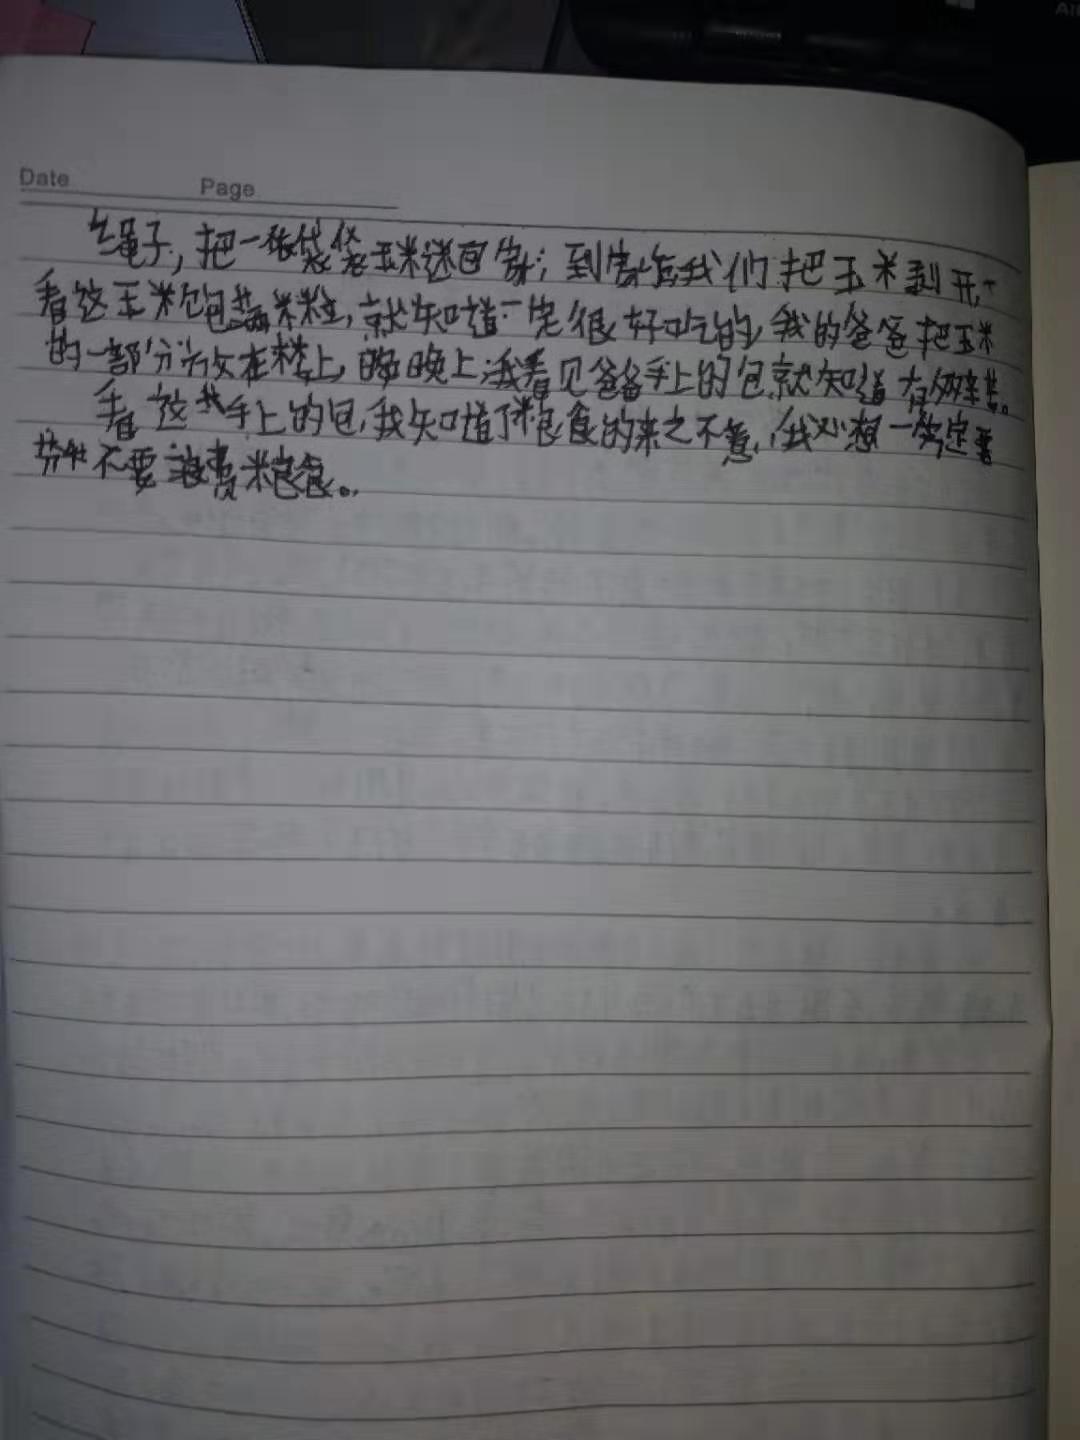 Date Page
绳子，把一袋袋玉米送回家；到家后我们把玉米剥开
看这玉米饱满米粒，就知道一定很好吃的，我的爸爸把玉米
的一部分放在楼上，晚晚上我看见爸爸手上的包就知道有多辛苦。
看这手上的包，我知道了粮食的来之不易，我心想一定要
不要浪费粮食。